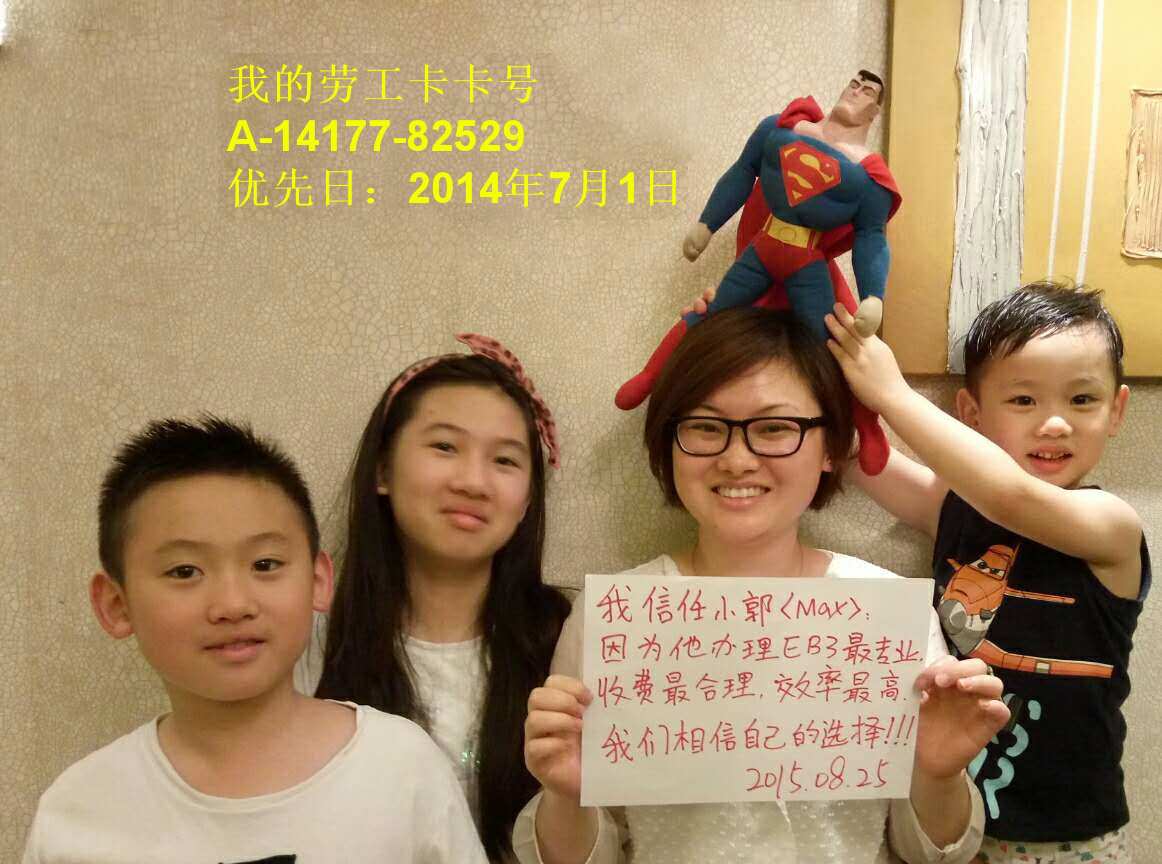 我的劳工卡卡号
A-14177-82529
优先日：2014年7月1日
我信任小郭<Max>:
因为他办理EB3最专业.
收费最合理,效率最高.
我们相信自己的选择!!!
2015.08.25